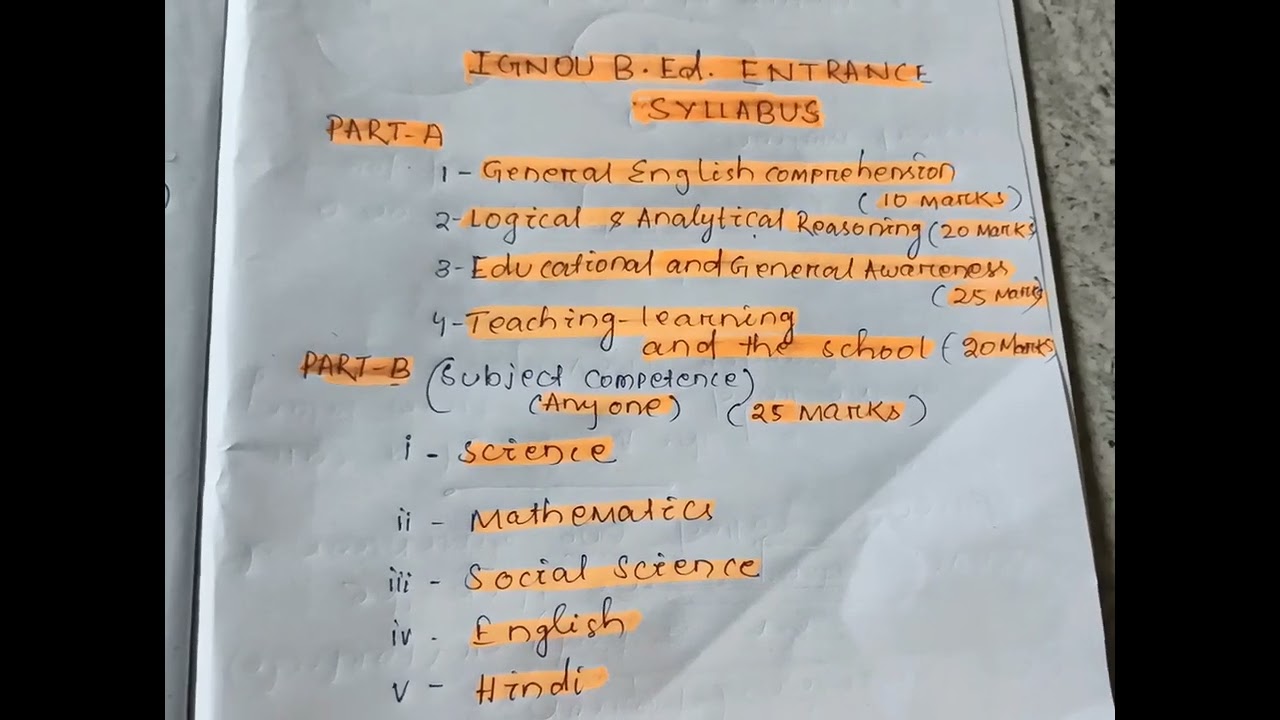 IGNOU B.Ed. ENTRANCE
SYLLABUS
PART-A
1 - General English comprehension
(10 Marks)
2 - Logical & Analytical Reasoning (20 Marks)
3 - Educational and General Awareness
(25 Marks)
4 - Teaching-learning
and the school (20 Marks)
PART-B (Subject Competence)
(Any one) (25 Marks)
i - Science
ii - Mathematics
iii - Social Science
iv - English
v - Hindi